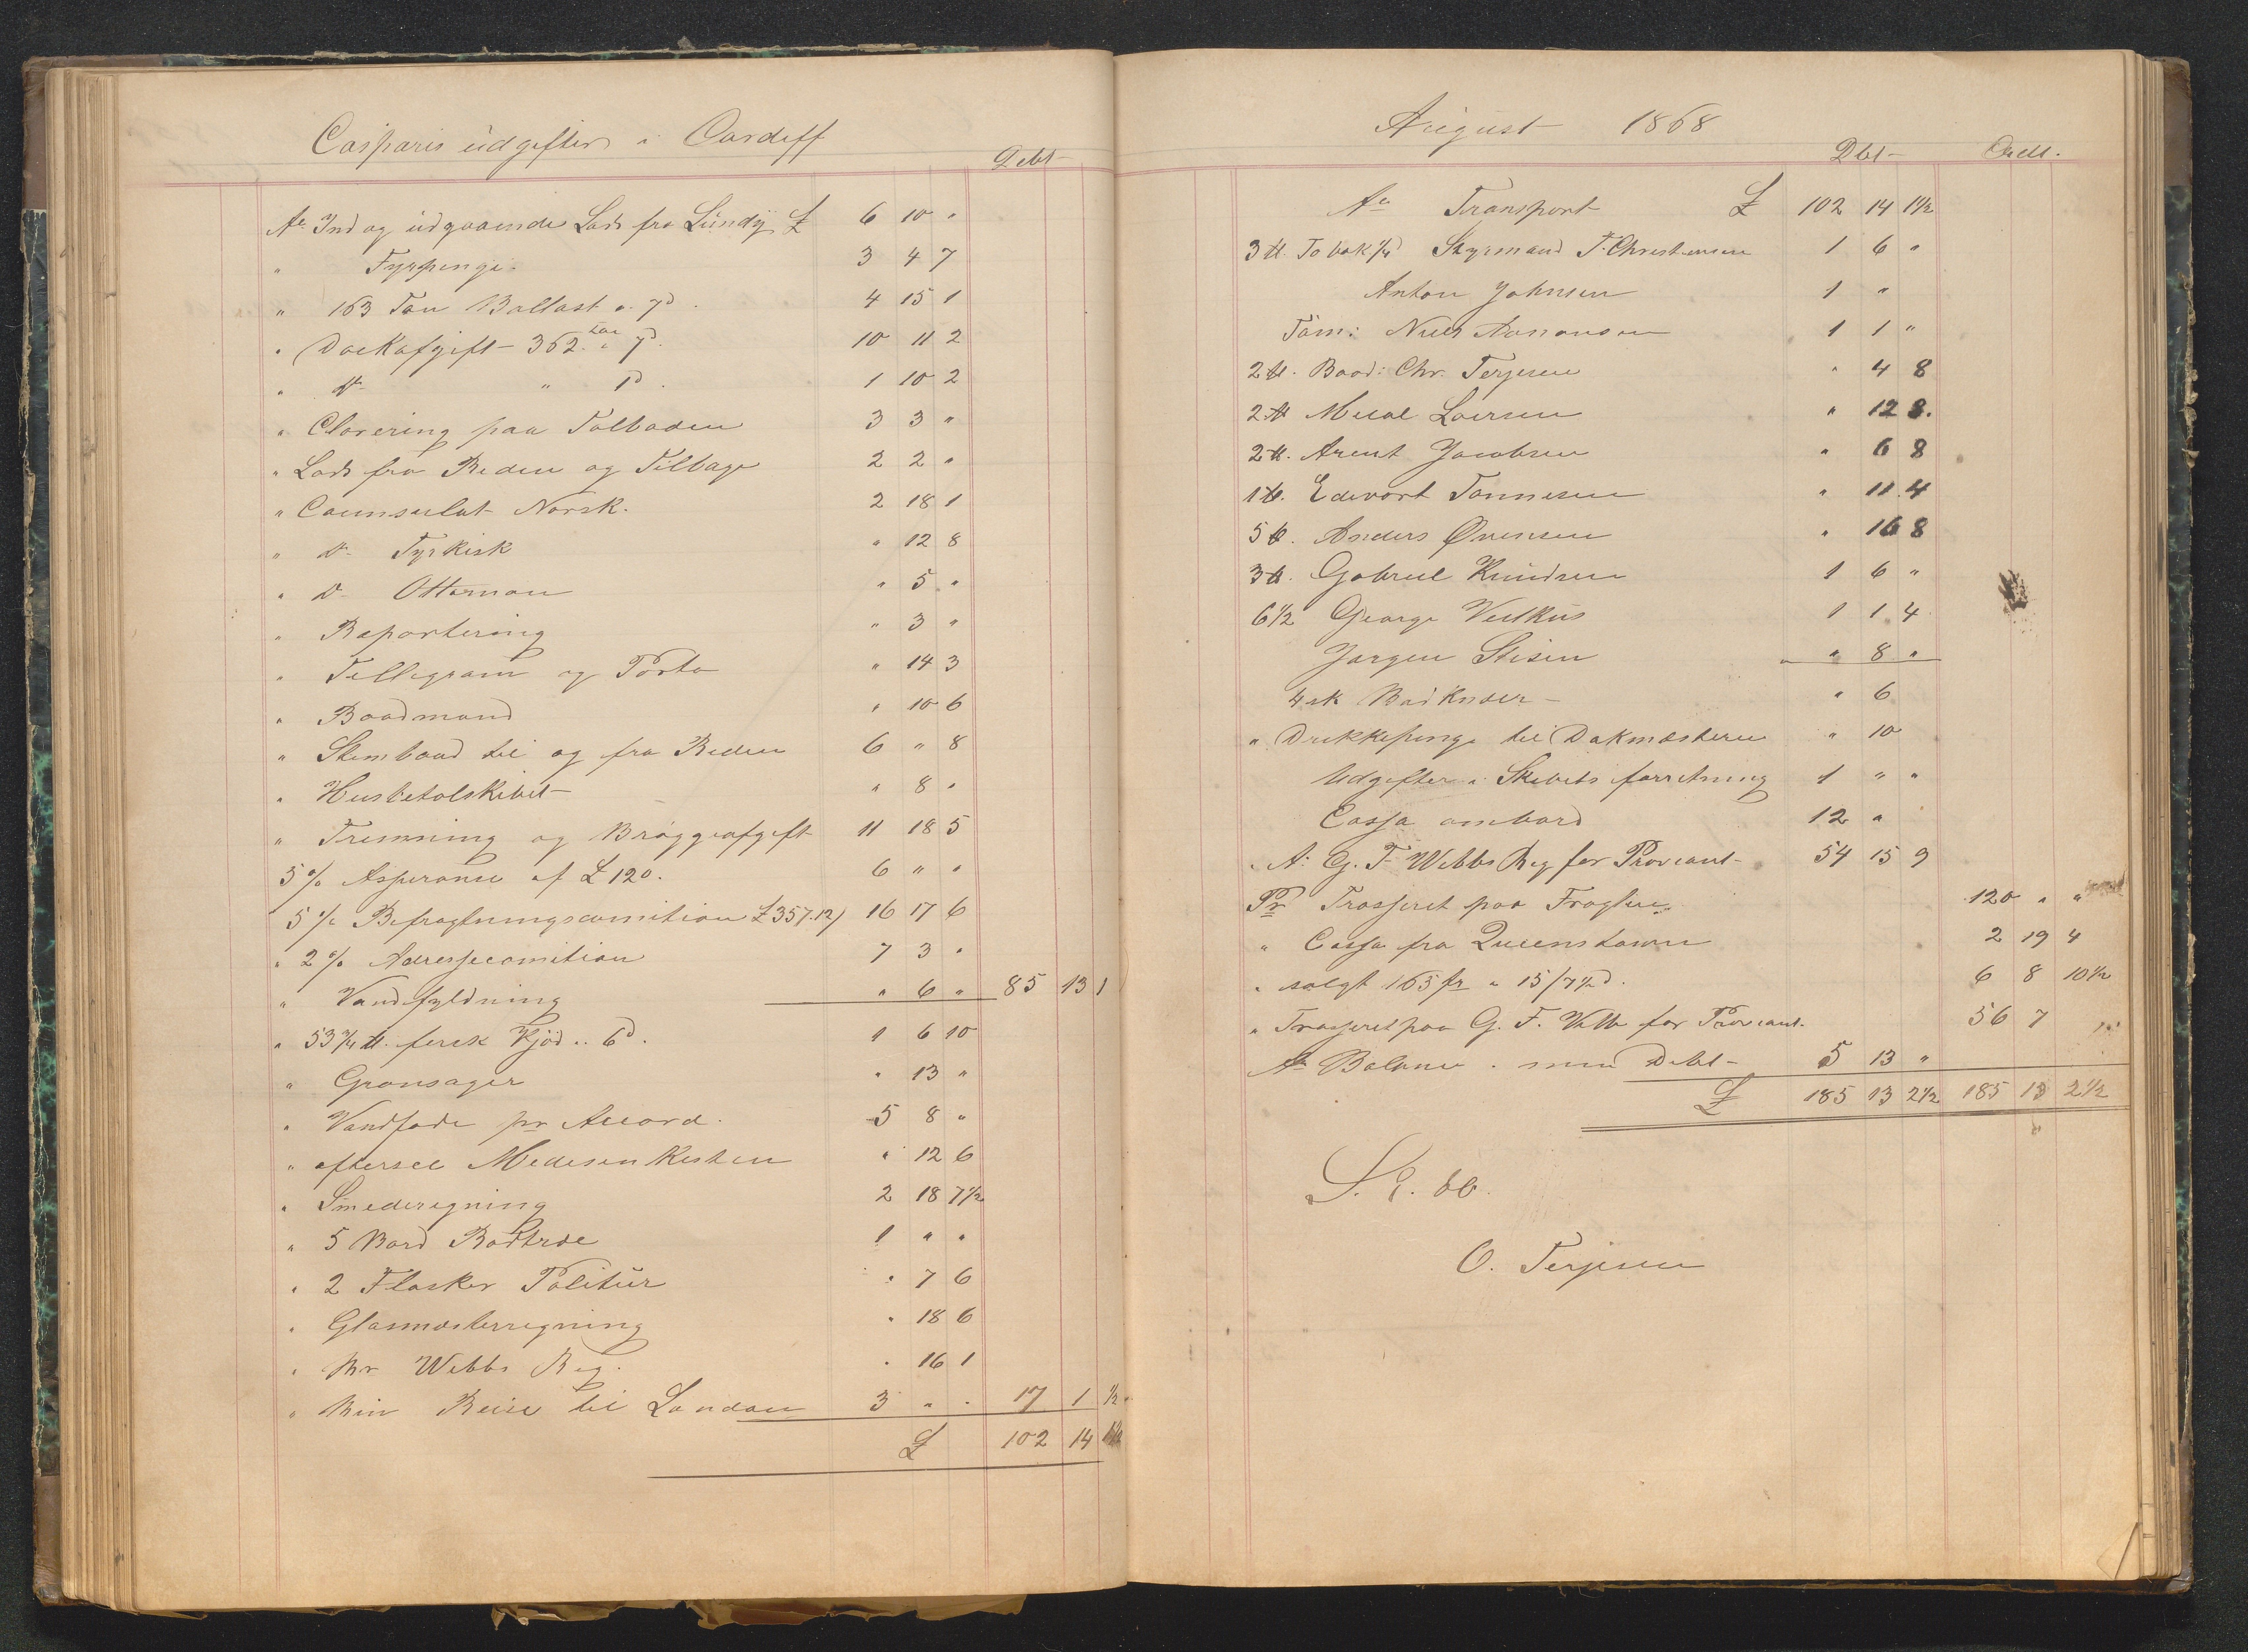 Casparis udgifter i Cardiff
Debt
An Ind og udgaaende Lods fra Lundy £ 6 10 "
" Fyrpenge 3 4 7
" 163 Ton Ballast a 7d 4 15 1
" Dockafgift 362 ton a 7d 10 11 2
" do " 1d 1 10 2
" Clarering paa Tolboden 3 3 "
" Lods fra Reden og Tilbage 2 2 "
" Counsulat Norsk. 2 18 1
" do Tyrkisk " 12 8
" do Ottoman " 5 "
" Raportering " 3 "
" Tellegram og Porto " 14 3
" Baadmand " 10 6
" Stembaad til og fra Reden 6 " 8
" Husbetolskibet " 8 "
" Tremning og Bryggeafgift 11 18 5
5 % Asperanse af £ 120. 6 " "
5 % Befragtningscomition £ 357.12) 16 17 6
" 2 % Adressecomition 7 3 "
" Vandfyldning " 6 " 85 13 1
" 53 ¾ ℔. fersk Kjød a 6d. 1 6 10
" Grønsager " 13 "
" Vandfade pr Accord. 5 8 "
" eftersee Medesenkisten " 12 6
" Smederegning 2 18 7½
" 5 Bord Badtræ 1 " "
" 2 Flasker Politur " 7 6
" Glasmesterregning " 18 6
" Mr Webbs Reg. " 16 1
" Min Reise til London 3 " " 17 1 ½
£ 102 14 1½
August 1868
Dbt Credt.
An Transport £ 102 14 1½
3 ℔. Tobak 1/4 Styrmand T. Christensen 1 6 "
Anton Johnsen 1 "
Tøm: Niels Aanonsen 1 1 "
2 ℔. Baad: Chr. Terjesen " 4 8
2 ℔ Laersen " 12 8.
2 ℔. Arent Jacobsen " 6 8
1 ℔. Edevart Tønnesen " 11 4
5 ℔. Anders Ovensen " 16 8
3 ℔. Gabriel Knudsen 1 6 "
6½ George 1 1 4
Jørgen " 8 "
4 stk Badknær " 6
" Drikkepenge til Dokmesteren " 10
Udgifter i Skibets forretning 1 " "
Cassa ombord 12 "
An G. F. Webbs Reg for Proviant 54 15 9
Pr Trasseret paa Fragten 120 " "
" Cassa fra Queenstown 2 19 4
" solgt 165 fr a 15/7½d. 6 8 10½
" Trasseret paa G. F. Webb for Proviant. 56 7
An Balance . min Debt 5 13 "
£ 185 13 2½ 185 13 2½
S. E. &c.
O. Terjesen